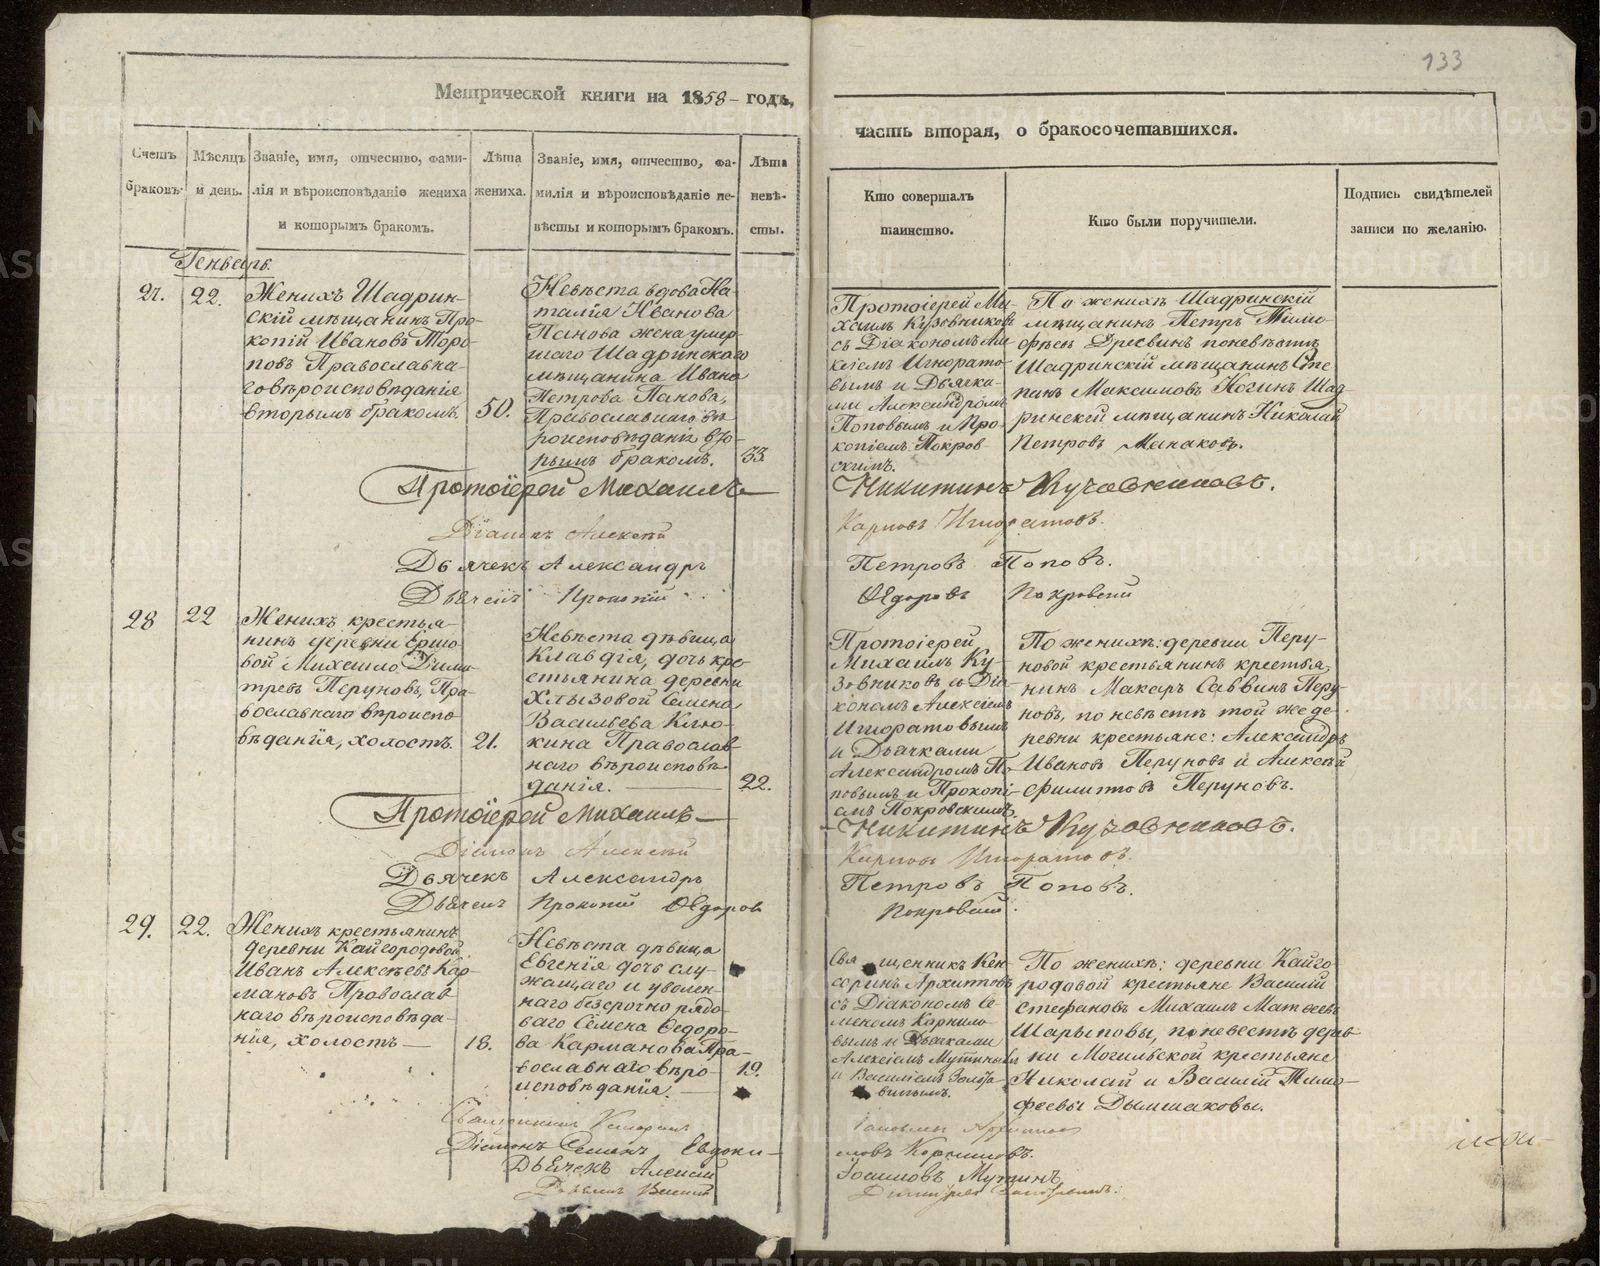 133
Метрической книги на 1858 годъ,
часть вторая, о бракосочетавшихся.
Счетъ браковъ.
Мѣсяцъ и день.
Званіе, имя, отчество, фами-
лія и вѣроисповѣданіе жениха
и которымъ бракомъ.
Лѣта
жениха.
Званіе, имя, отчество, фа-
милія и вѣроисповѣданіе не-
вѣсты и которымъ бракомъ.
Лѣта
невѣ-
сты.
Кто совершалъ
таинство.
Кто были поручители.
Подпись свидѣтелей
записи по желанію.
Генварь.
27.
22.
Женихъ Шадрин-
скій мѣщанинъ Про-
копій Ивановъ Торо-
повъ Православна-
го вѣроисповѣданія
вторымъ бракомъ.
50.
Невѣста вдова На-
талія Иванова
Панова жена умер-
шаго Шадринскаго
мѣщанина Ивана
Петрова Панова,
Православнаго вѣ-
роисповѣданія вто-
рымъ бракомъ.
33.
Протоіерей Ми-
хаилъ Кузовниковъ
съ Діакономъ Але-
ксіемъ Игнорато-
вымъ и Дьячка-
ми Александромъ
Поповымъ и Про-
копіемъ Покров-
скимъ.
По женихѣ Шадринскій
мѣщанинъ Петръ Тимо-
фѣевъ по невѣстѣ
Шадринскій мѣщанинъ Сте-
панъ Максимовъ Ногинъ Шад-
ринскій мѣщанинъ Николай
Петровъ Манаковъ.
Протоіерей Михаилъ Никитинъ Кузовниковъ.
Діаконъ Алексѣй Карповъ Игноратовъ.
Дьячекъ Александръ Петровъ Поповъ.
Дьячекъ Прокопій Ѳедоровъ Покровскій
28
22
Женихъ крестья-
нинъ деревни Ершо-
вой Михаило Дими-
тревъ Перуновъ, Пра-
вославнаго вѣроиспо-
вѣданія, холостъ.
21.
Невѣста дѣвица
Клавдія, дочь кре-
стьянина деревни
Хлызовой Семена
Васильева Клю-
кина Православ-
наго вѣроисповѣ-
данія.
22.
Протоіерей
Михаилъ Ку-
зовниковъ съ Діа-
кономъ Алексіемъ
Игноратовымъ
и Дьячками
Александромъ По-
повымъ и Прокопі-
емъ Покровскимъ.
По женихѣ: деревни Перу-
новой крестьянинъ крестья-
нинъ Макаръ Саввинъ Перу-
новъ, по невѣстѣ той же де-
ревни крестьяне: Александръ
Ивановъ Перуновъ и Алексѣй
Филиповъ Перуновъ.
Протоіерей Михаилъ Никитинъ Кузовниковъ.
Діаконъ Алексѣй Карповъ Игноратовъ.
Дьячекъ Александръ Петровъ Поповъ.
Дьячекъ Прокопій Ѳедоровъ Покровскій.
29.
22.
Женихъ крестьянинъ
деревни Кайгородовой
Иванъ Алексѣевъ Кар-
мановъ Православ-
наго вѣроисповѣда-
нія, холостъ
18.
Невѣста дѣвица
Евгенія дочь слу-
жащаго и уволен-
наго безсрочно рядо-
ваго Семена Ѳедоро-
ва Карманова Пра-
вославнаго вѣро-
исповѣданія.
19.
Священникъ Кен-
соринъ Архиповъ
съ Діакономъ Се-
меномъ Корнило-
вымъ и Дьячками
Алексіемъ Мутинымъ
и Василіемъ
По женихѣ: деревни Кайго-
родовой крестьяне Василій
Стефановъ Михаилъ Матвеевъ
Шарыповы, по невестѣ дерев-
ни Могильской крестьяне
Николай и Василій Тимо-
феевы Дымшаковы.
Священникъ Кенсоринъ
Діаконъ Семенъ Евдоки-
мовъ Корниловъ.
Дьячекъ Алексѣй Іоакимовъ Мутинъ
Дьячекъ Василій
METRIKI.GASO-URAL.RU